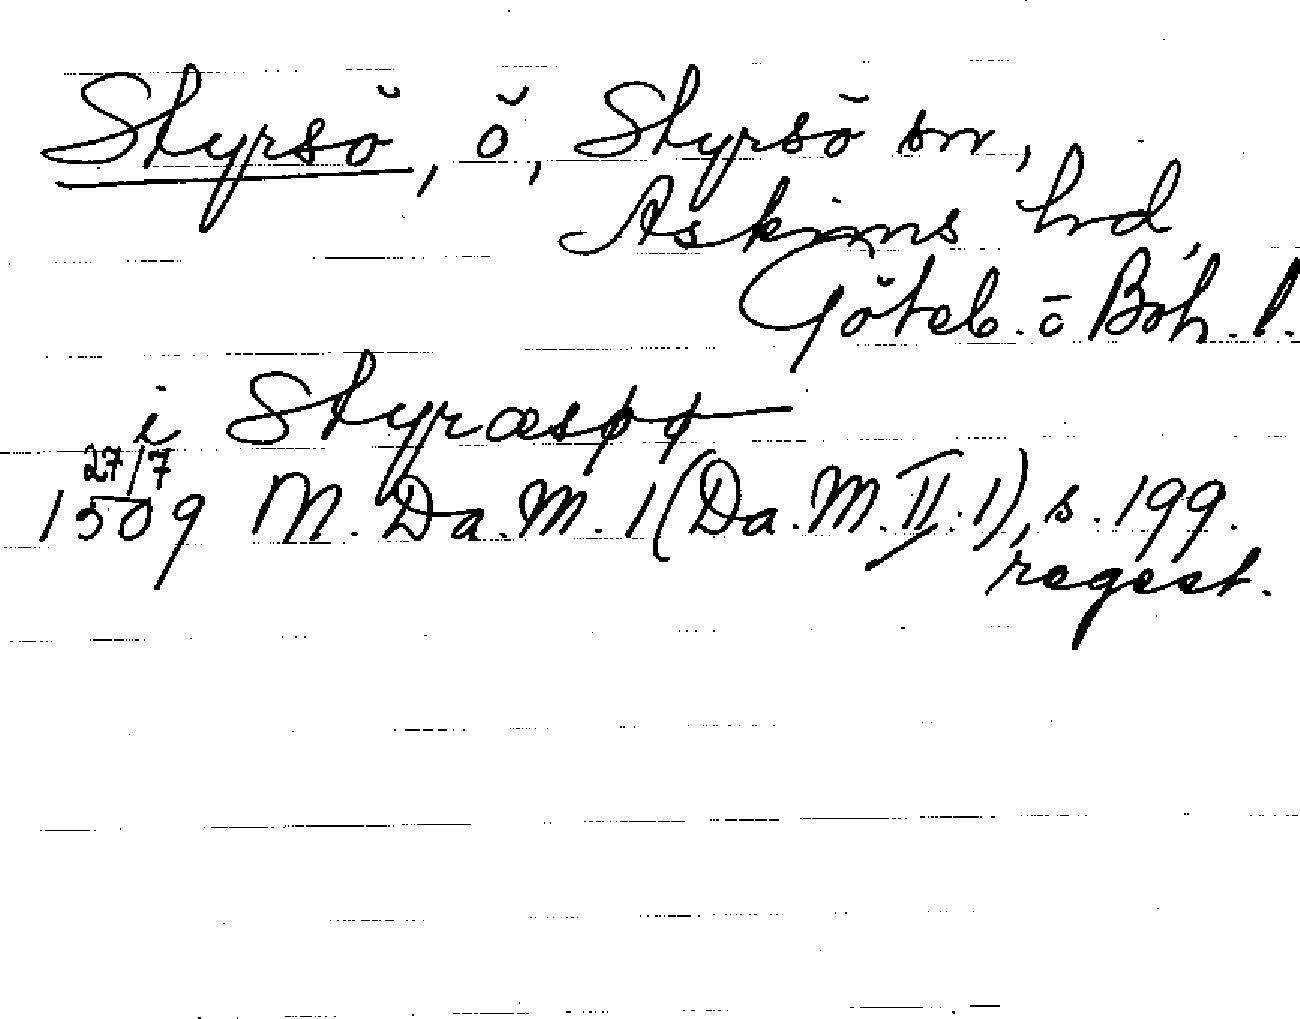 Styrsö, ö, Styrsö sn,
Askims hd,
Göteb. o Boh. l.
i Styræsøø
27/7
1509 M. Da. M. 1 (Da. M. II: 1), s. 199.
regest.